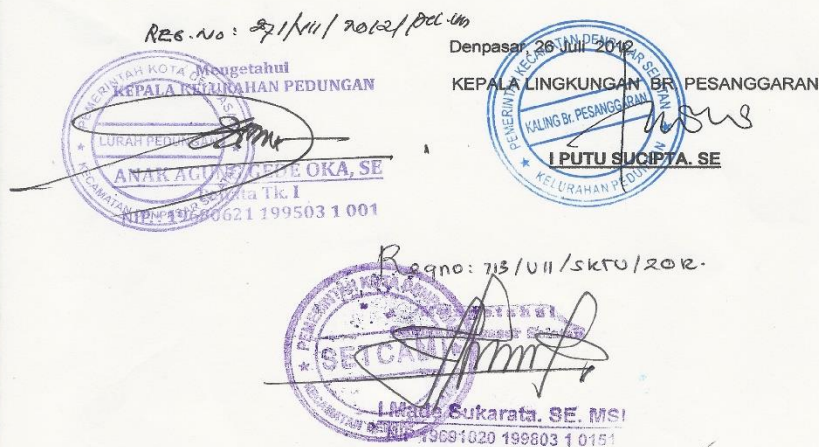 REG.No: 271/VII/2012/
Mengetahui
KEPALA KELURAHAN PEDUNGAN
PEMERINTAH KOTA DENPASAR
LURAH PEDUNGAN
KECAMATAN DENPASAR SELATAN
ANAK AGUNG GEDE OKA, SE
Penata Tk. I
NIP. 19680621 199503 1 001
Denpasar, 26 Juli 2012
KEPALA LINGKUNGAN BR. PESANGGARAN
PEMERINTAH KECAMATAN DENPASAR SELATAN
KALING Br. PESANGGARAN
KELURAHAN PEDUNGAN
I PUTU SUCIPTA. SE
Regno: 713/VII/SKTU/2012.
Mengetahui
PEMERINTAH KOTA DENPASAR
SETCAM
KECAMATAN
I Made Sukarata. SE. MSi
NIP 19691020 199803 1 0151